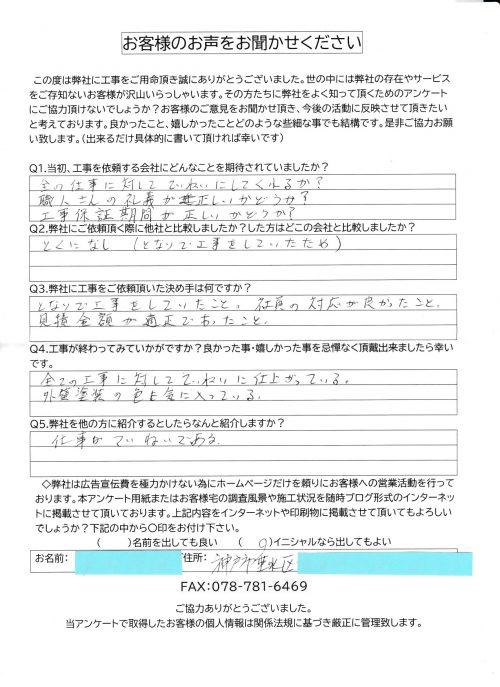 お客様のお声をお聞かせください
この度は弊社に工事をご用命頂き誠にありがとうございました。世の中には弊社の存在やサービス
をご存知ないお客様が沢山いらっしゃいます。その方たちに弊社をよく知って頂くためのアンケート
にご協力頂けないでしょうか?お客様のご意見をお聞かせ頂き、今後の活動に反映させて頂きたい
と考えております。良かったこと、嬉しかったことどのような些細な事でも結構です。是非ご協力お
願い致します。(出来るだけ具体的に書いて頂ければ幸いです)
Q1.当初、工事を依頼する会社にどんなことを期待されていましたか?
全の仕事に対してていねいにしてくれるか?
職人さんの礼義が正しいかどうか?
工事保証期間が正しいかどうか?
Q2.弊社にご依頼頂く際に他社と比較しましたか?した方はどこの会社と比較しましたか?
とくになし (となりで工事をしていたため)
Q3.弊社に工事をご依頼頂いた決め手は何ですか?
となりで工事をしていたこと。社員の対応が良かったこと。
見積金額が適正であったこと。
Q4.工事が終わってみていかがですか?良かった事・嬉しかった事を忌憚なく頂戴出来ましたら幸い
です。
全ての工事に対してていねいに仕上がっている。
外壁塗装の色も気に入っている。
Q5.弊社を他の方に紹介するとしたらなんと紹介しますか?
仕事がていねいである。
◇弊社は広告宣伝費を極力かけない為にホームページだけを頼りにお客様への営業活動を行って
おります。本アンケート用紙またはお客様宅の調査風景や施工状況を随時ブログ形式のインターネッ
トに掲載させて頂いております。上記内容をインターネットや印刷物に掲載させて頂いてもよろしい
でしょうか?下記の中から〇印をお付け下さい。
( )名前を出しても良い (〇)イニシャルなら出してもよい
お名前: ご住所: 神戸市垂水区
FAX:078-781-6469
ご協力ありがとうございました。
当アンケートで取得したお客様の個人情報は関係法規に基づき厳正に管理致します。